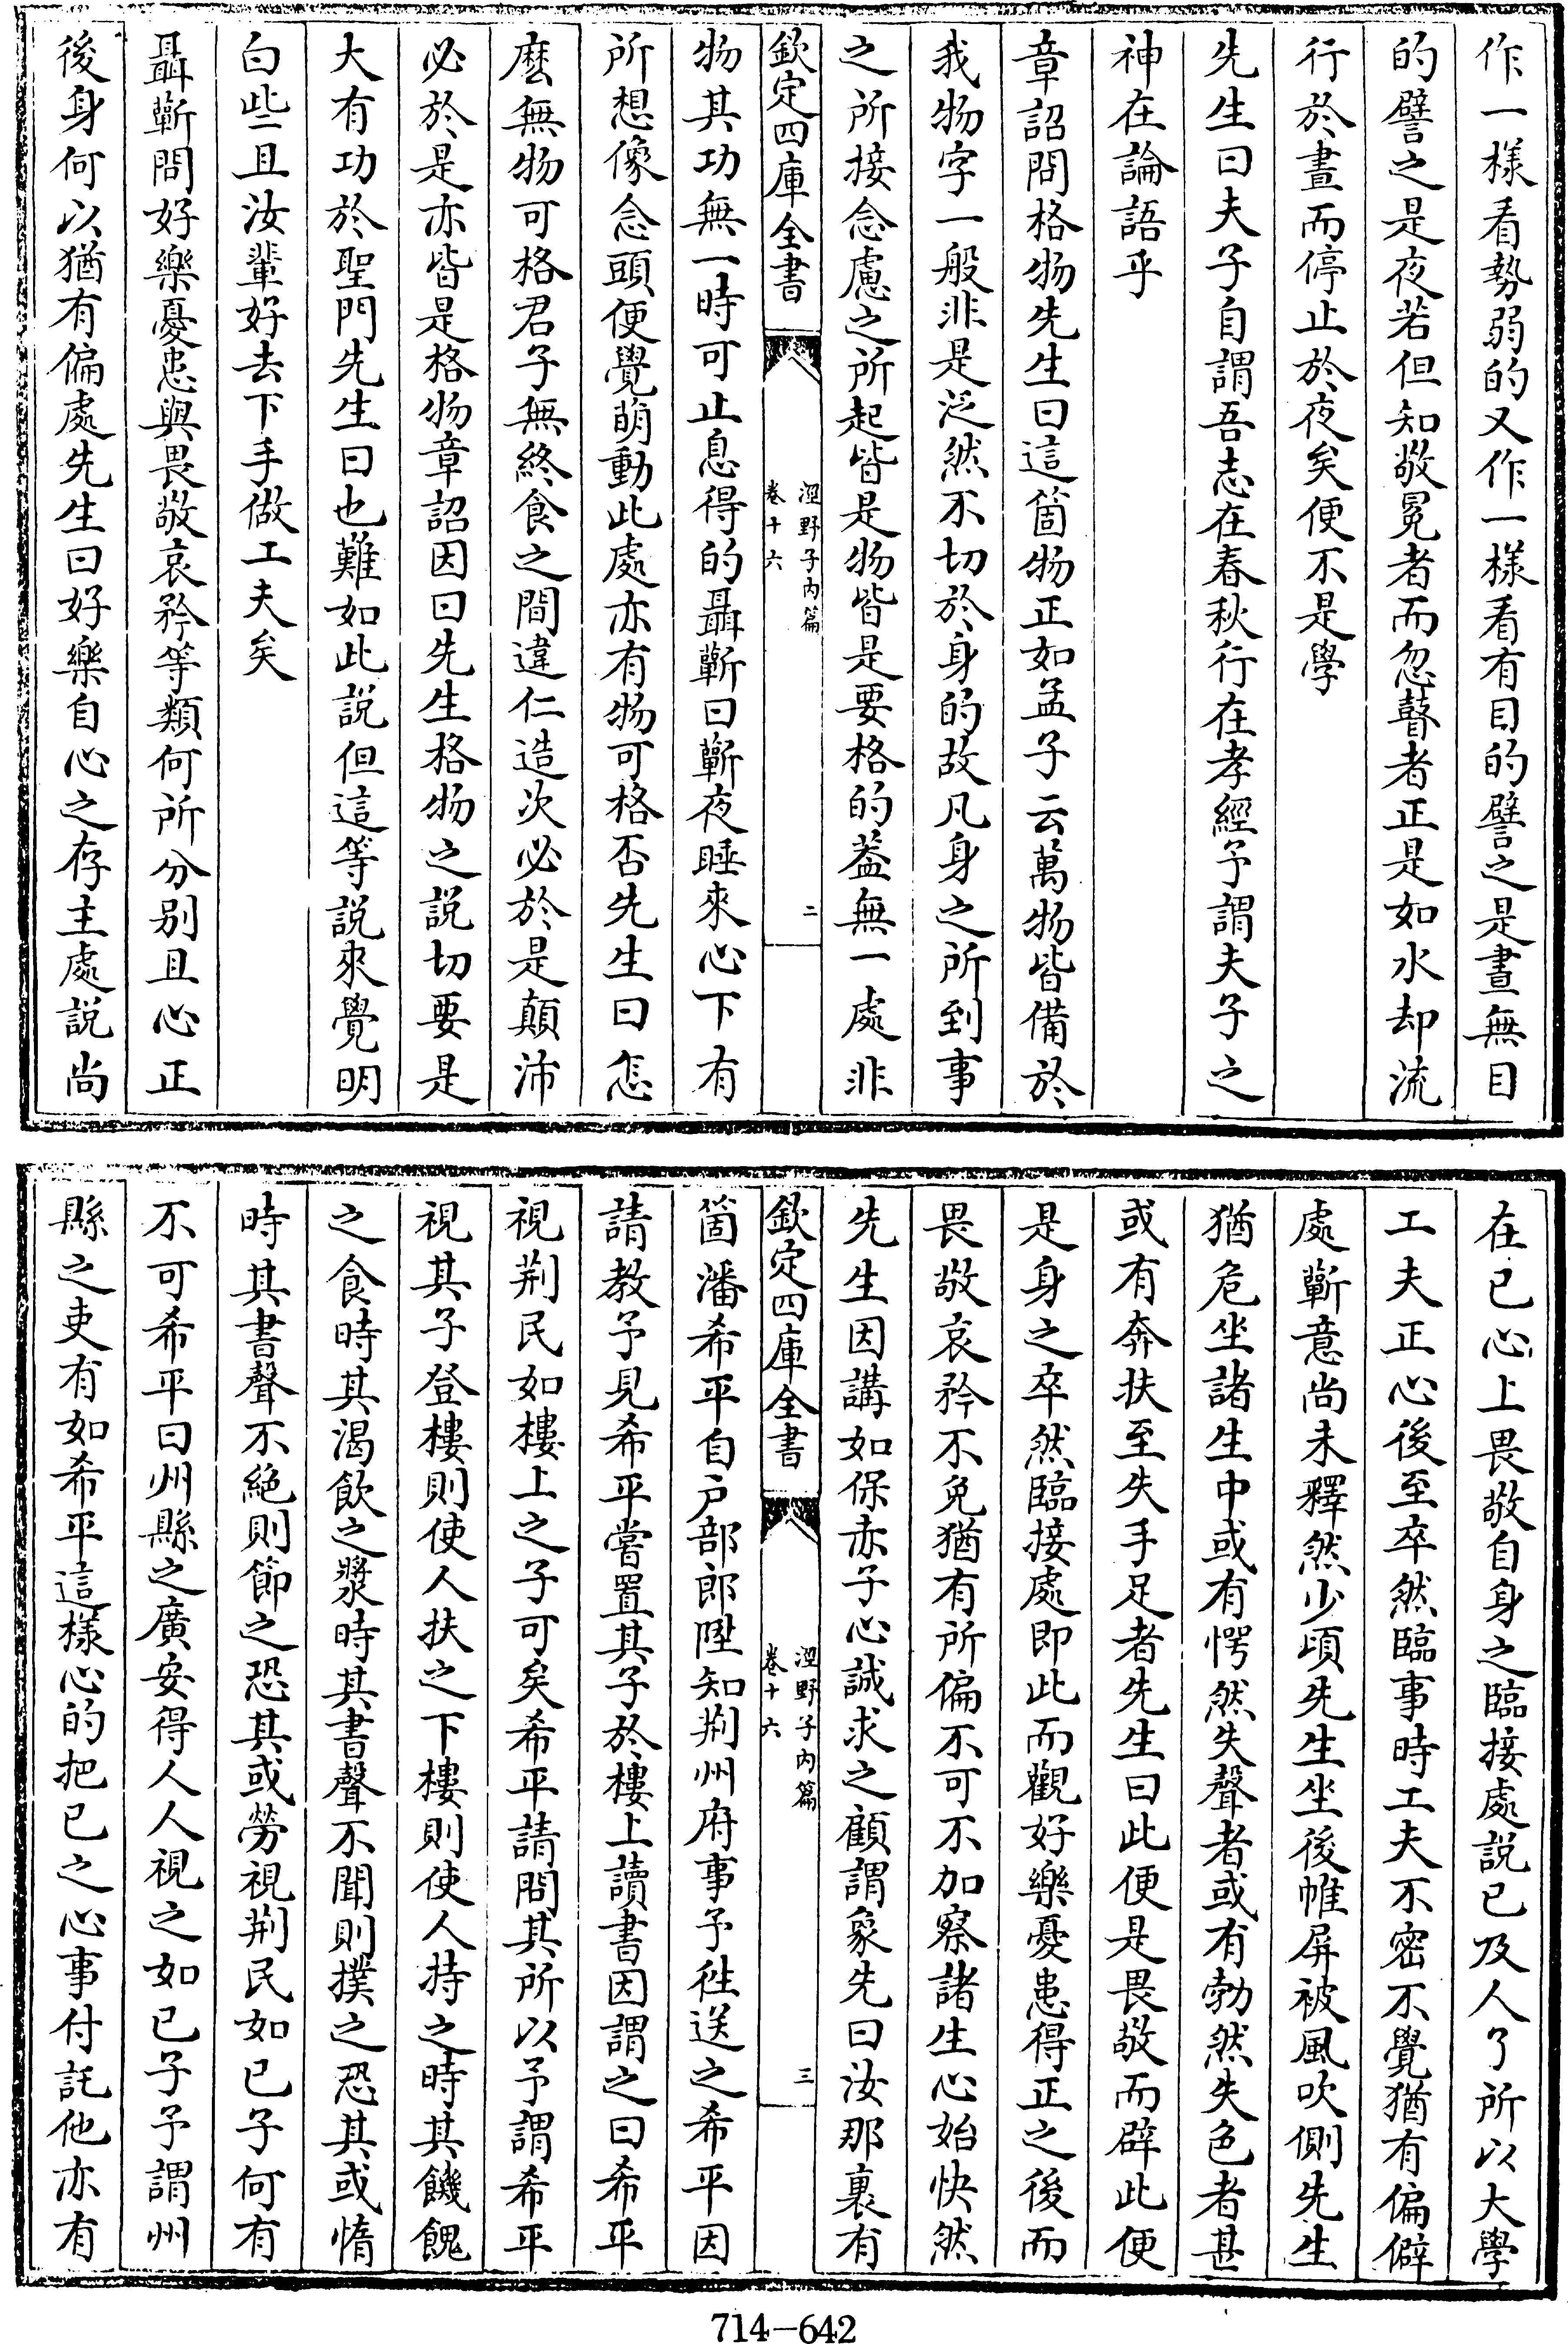 作一樣看勢弱的又作一樣看有目的譬之是晝無目
的譬之是夜若但知敬冕者而忽瞽者正是如水却流
行於晝而停止於夜矣便不是學
先生曰夫子自謂吾志在春秋行在孝經予謂夫子之
神在論語乎
章詔問格物先生曰這箇物正如孟子云萬物皆備於
我物字一般非是泛然不切於身的故凡身之所到事
之所接念慮之所起皆是物皆是要格的葢無一處非
欽定四庫全書
涇野子内篇
卷十六
二
物其功無一時可止息得的聶蘄曰蘄夜睡來心下有
所想像念頭便覺萌動此處亦有物可格否先生曰怎
麽無物可格君子無終食之間違仁造次必於是顛沛
必於是亦皆是格物章詔因曰先生格物之説切要是
大有功於聖門先生曰也難如此説但這等説來覺明
白些且汝輩好去下手做工夫矣
聶蘄問好樂憂患與畏敬哀矜等類何所分别且心正
後身何以猶有偏處先生曰好樂自心之存主處説尚
在已心上畏敬自身之臨接處説已及人了所以大學
工夫正心後至卒然臨事時工夫不密不覺猶有偏僻
處蘄意尚未釋然少頃先生坐後帷屏被風吹側先生
猶危坐諸生中或有愕然失聲者或有勃然失色者甚
或有奔扶至失手足者先生曰此便是畏敬而辟此便
是身之卒然臨接處即此而觀好樂憂患得正之後而
畏敬哀矜不免猶有所偏不可不加察諸生心始快然
先生因講如保赤子心誠求之顧謂象先曰汝那裏有
欽定四庫全書
涇野子内篇
卷十六
三
箇潘希平自户部郎陞知荆州府事予徃送之希平因
請教予見希平嘗置其子於樓上讀書因謂之曰希平
視荆民如樓上之子可矣希平請問其所以予謂希平
視其子登樓則使人扶之下樓則使人持之時其饑餽
之食時其渴飲之漿時其書聲不聞則撲之恐其或惰
時其書聲不絶則節之恐其或勞視荆民如已子何有
不可希平曰州縣之廣安得人人視之如已子予謂州
縣之吏有如希平這樣心的把已之心事付託他亦有
714-642